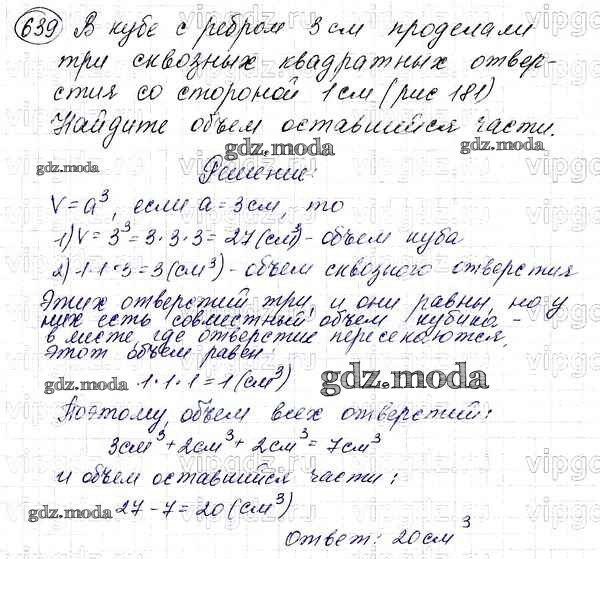 639 В кубе с ребром 3 см проделали
три сквозных квадратных отвер-
стия со стороной 1 см (рис 181)
Найдите объем оставшейся части.
gdz.moda
gdz.moda
gdz.moda
Решение:
V = a³, если a = 3 см, то
1) V = 3³ = 3·3·3 = 27 (см³) - объем куба
2) 1·1·3 = 3 (см³) - объем сквозного отверстия
Этих отверстий три, и они равны, но у
них есть совместный объем кубика -
в месте где отверстие пересекаются.
Этот объем равен:
gdz.moda
1·1·1 = 1 (см³)
gdz.moda
Поэтому, объем всех отверстий:
3см³ + 2см³ + 2см³ = 7см³
и объем оставшийся части:
gdz.moda
27 - 7 = 20 (см³)
gdz.moda
Ответ: 20см³